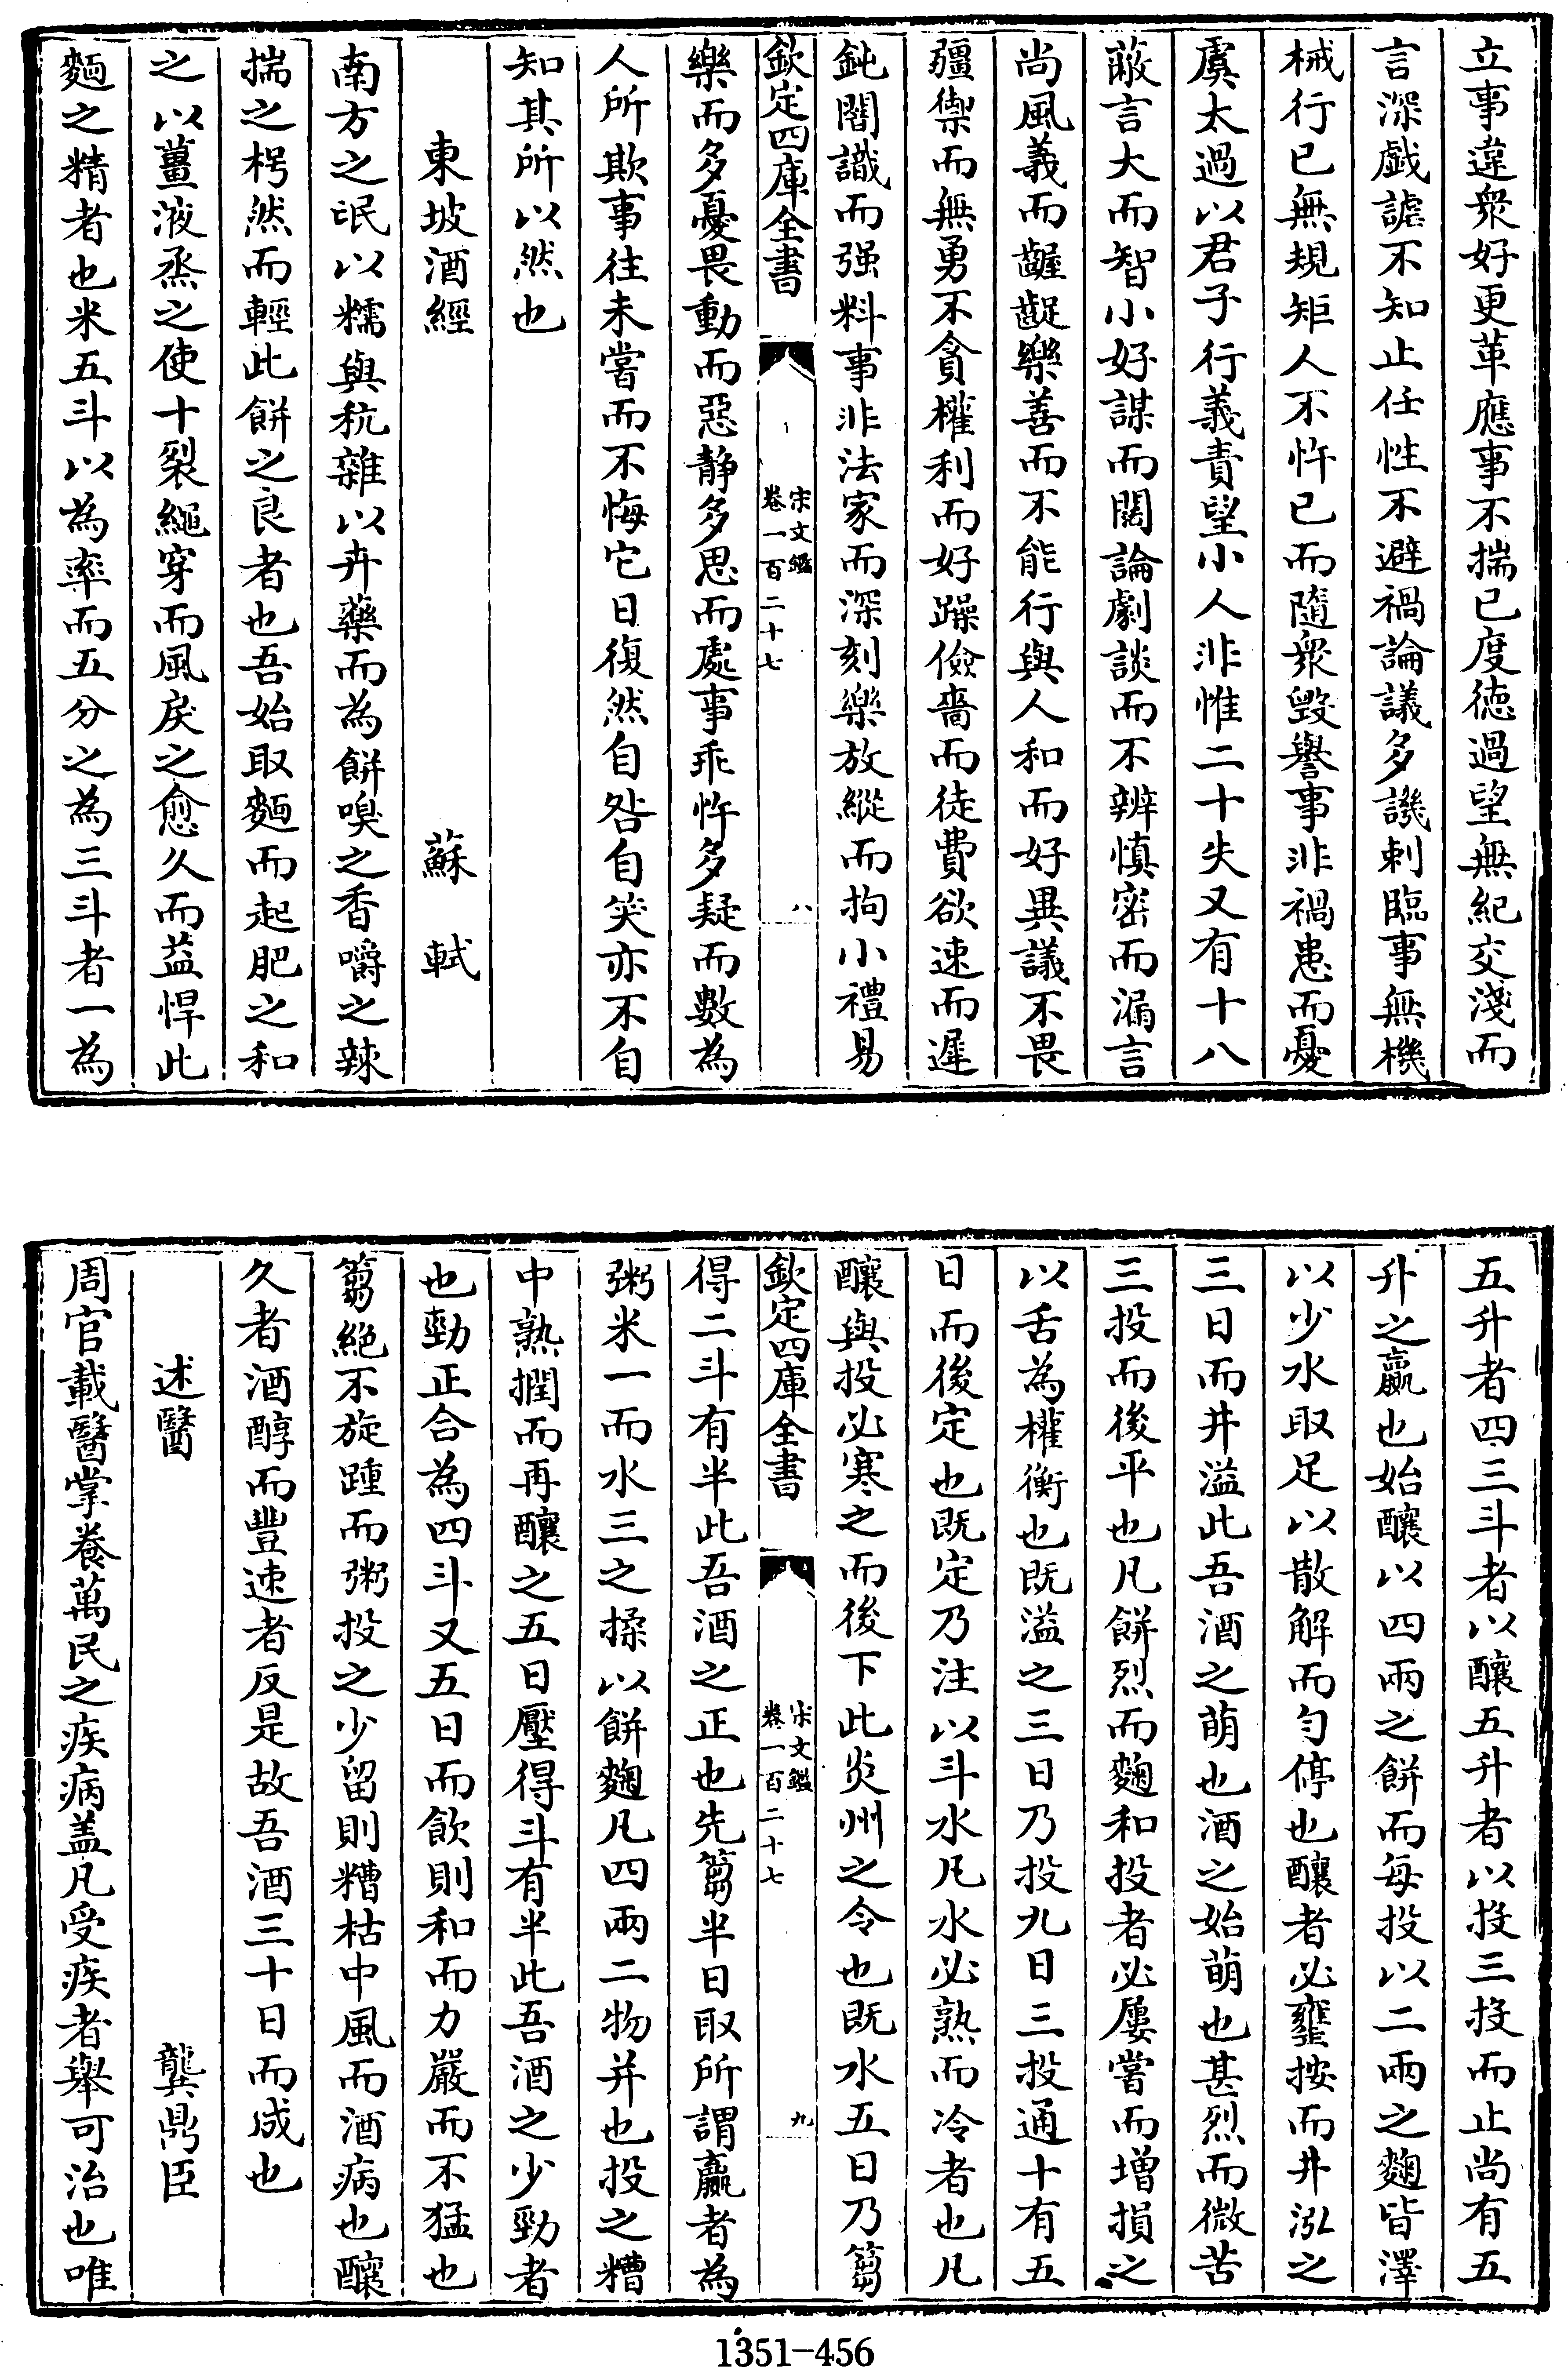 立事違衆好更革應事不揣已度徳過望無紀交淺而
言深戯謔不知止任性不避禍論議多譏刺臨事無機
械行已無規矩人不忤已而隨衆毀譽事非禍患而憂
虞太過以君子行義責望小人非惟二十失又有十八
蔽言大而智小好謀而闊論劇談而不辨慎密而漏言
尚風義而齷齪樂善而不能行與人和而好異議不畏
彊禦而無勇不貪權利而好躁儉嗇而徒費欲速而遲
鈍闇識而强料事非法家而深刻樂放縱而拘小禮易
欽定四庫全書
宋文鑑
卷一百二十七
八
樂而多憂畏動而惡静多思而處事乖忤多疑而數為
人所欺事往未嘗而不悔它日復然自咎自笑亦不自
知其所以然也
東坡酒經 蘇軾
南方之氓以糯與秔雜以卉藥而為餅嗅之香嚼之辣
揣之枵然而輕此餅之良者也吾始取麵而起肥之和
之以薑液烝之使十裂繩穿而風戾之愈久而益悍此
麵之精者也米五斗以為率而五分之為三斗者一為
五升者四三斗者以釀五升者以投三投而止尚有五
升之贏也始釀以四兩之餅而每投以二兩之麴皆澤
以少水取足以散解而勻停也釀者必壅按而井泓之
三日而井溢此吾酒之萌也酒之始萌也甚烈而微苦
三投而後平也凡餅烈而麴和投者必屢嘗而増損之
以舌為權衡也既溢之三日乃投九日三投通十有五
日而後定也既定乃注以斗水凡水必熟而冷者也凡
釀與投必寒之而後下此炎州之令也既水五日乃篘
欽定四庫全書
宋文鑑
卷一百二十七
九
得二斗有半此吾酒之正也先篘半日取所謂贏者為
粥米一而水三之揉以餅麴凡四兩二物并也投之糟
中熟撋而再釀之五日壓得斗有半此吾酒之少勁者
也勁正合為四斗又五日而飲則和而力嚴而不猛也
篘絶不旋踵而粥投之少留則糟枯中風而酒病也釀
久者酒醇而豐速者反是故吾酒三十日而成也
述醫 龔鼎臣
周官載醫掌養萬民之疾病盖凡受疾者舉可治也唯
1351-456